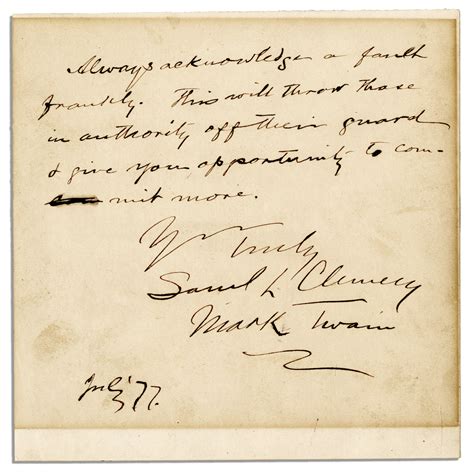 Always acknowledge a fault
frankly. This will throw those
in authority off their guard
& give you opportunity to com-
mit more.
Yrs Truly
Saml L Clemens
Mark Twain
77.